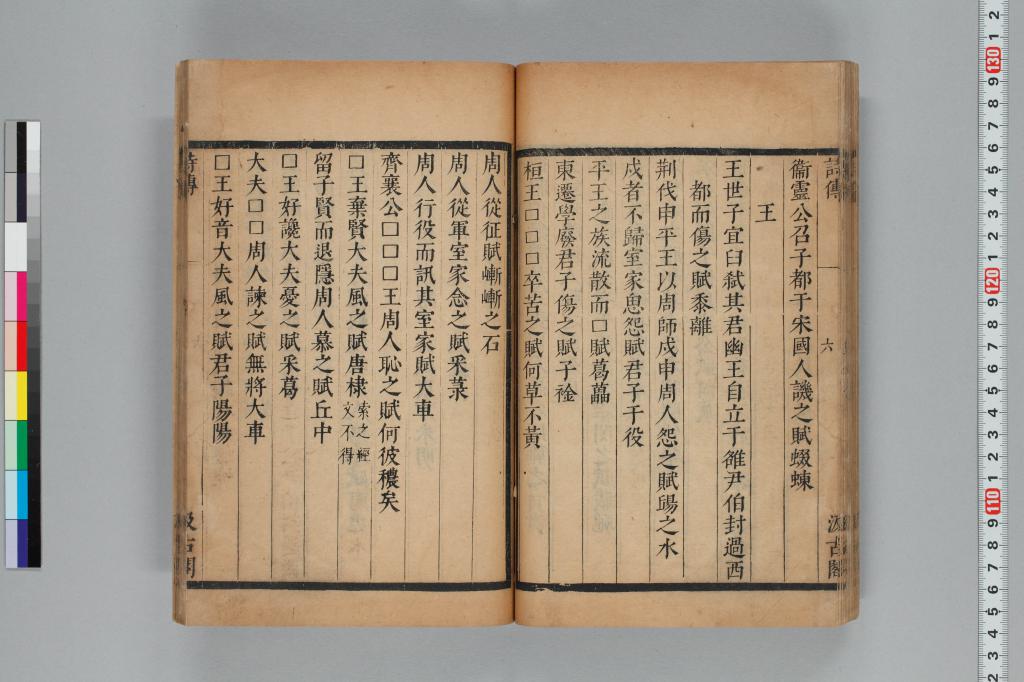 詩傳
六
汲古閣
衞靈公召子都于宋國人譏之賦蝃蝀
王
王世子宜臼弑其君幽王自立于雒尹伯封過西
都而傷之賦黍離
荆伐申平王以周師戍申周人怨之賦昜之水
戍者不歸室家思怨賦君子于役
平王之族流散而□賦葛藟
東遷學廢君子傷之賦子衿
桓王□□□卒苦之賦何草不黃
周人從征賦嶄嶄之石
周人從軍室家念之賦采菉
周人行役而訊其室家賦大車
齊襄公□□□王周人恥之賦何彼穠矣
□王棄賢大夫風之賦唐棣索之經文不得
留子賢而退隱周人慕之賦丘中
□王好讒大夫憂之賦采葛
大夫□□周人諫之賦無將大車
□王好音大夫風之賦君子陽陽
詩傳
汲古閣
2
1
130
9
8
7
6
5
4
3
2
1
120
9
8
7
6
5
4
3
2
1
110
9
8
7
6
5
4
3
2